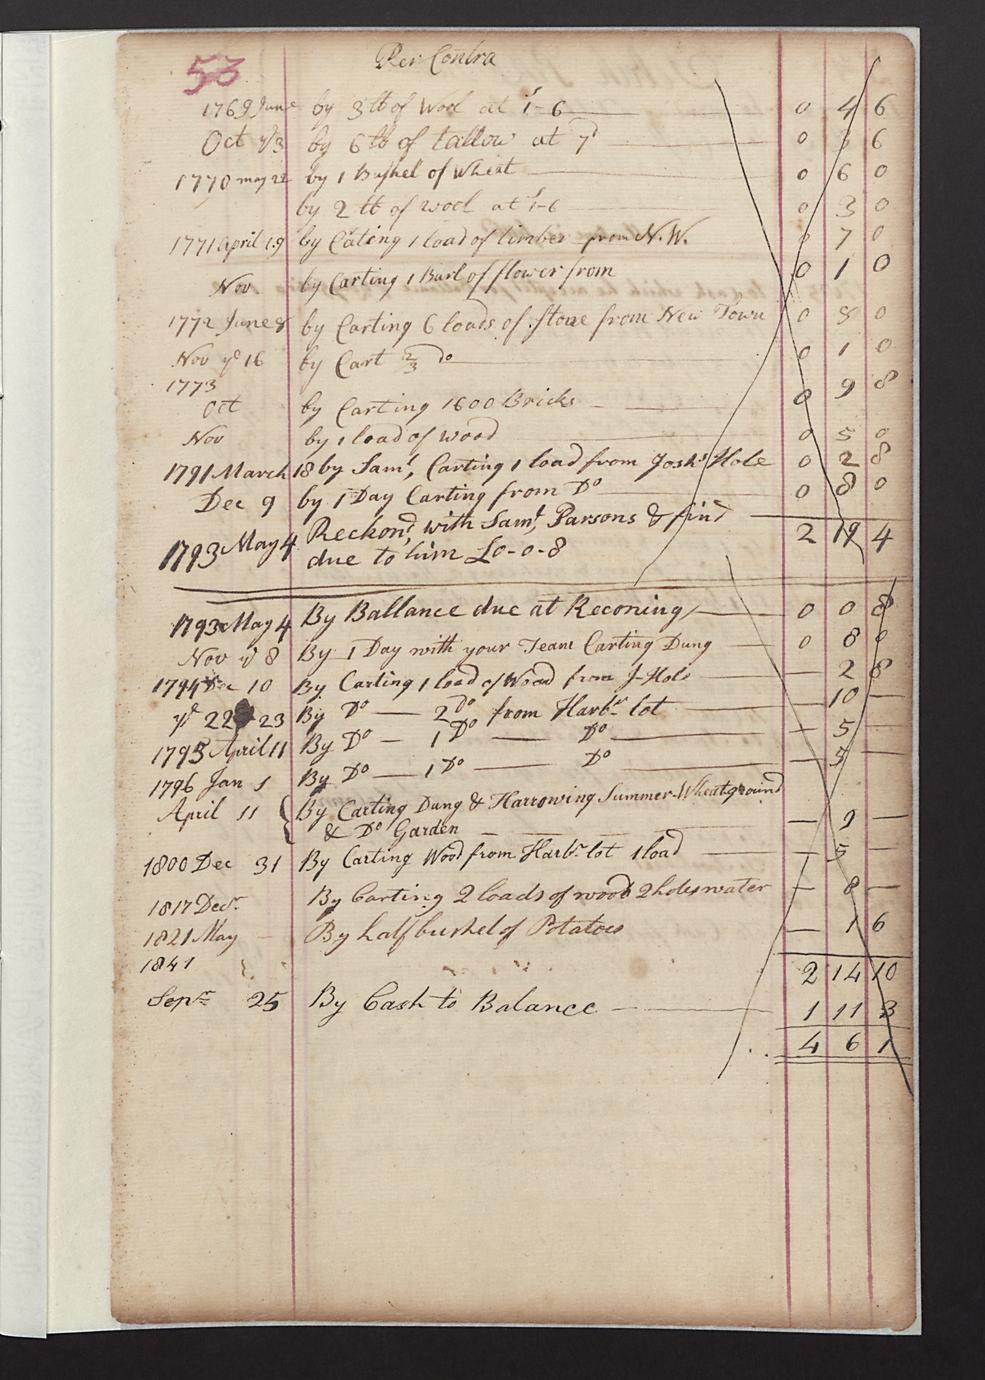 53 Per Contra
1769 June by 3 lb of Wool at 1-6 0 4 6
Oct ye 3 by 6 lb of tallow at 7d 0 3 6
1770 may 22 by 1 Bushel of Wheat 0 6 0
by 2 lb of wool at 1-6 0 3 0
1771 April 19 by Cating 1 load of timber from N.W. 0 7 0
Nov by Carting 1 Barl of flower from 0 1 0
1772 June 8 by Carting 6 loads of stone from New Town 0 8 0
Nov ye 16 by Cart 2/3 Do 0 1 0
1773
Oct by Carting 1600 Bricks 0 9 8
Nov by 1 load of wood 0 5 0
1791 March 18 by Saml, Carting 1 load from Joshs Hole 0 2 8
Dec 9 by 1 Day Carting from Do 0 8 0
1793 May 4 Reckond, with Saml, Parsons & find 2 19 4
due to him £0-0-8
1793 May 4 By Ballance due at Reconing 0 0 8
Nov ye 8 By 1 Day with your Team Carting Dung 0 8 0
1794 Dec 10 By Carting 1 load of Wood from J-Hole — 2 8
ye 22 23 By Do — 2 Do from Harbr lot 10 —
1795 April 11 By Do — 1 Do — Do — 5 —
1796 Jan 1 By Do — 1 Do — Do — 5 —
April 11 { By Carting Dung & Harrowing Summer-Wheatground
& Do Garden — 9 —
1800 Dec 31 By Carting Wood from Harbr lot 1 load — 5 —
1817 Decr By Carting 2 loads of wood 2 holes water — 8 —
1821 May By half bushel of Potatoes — 1 6
1841 2 14 10
Sepr 25 By Cash to Balance 1 11 3
4 6 1